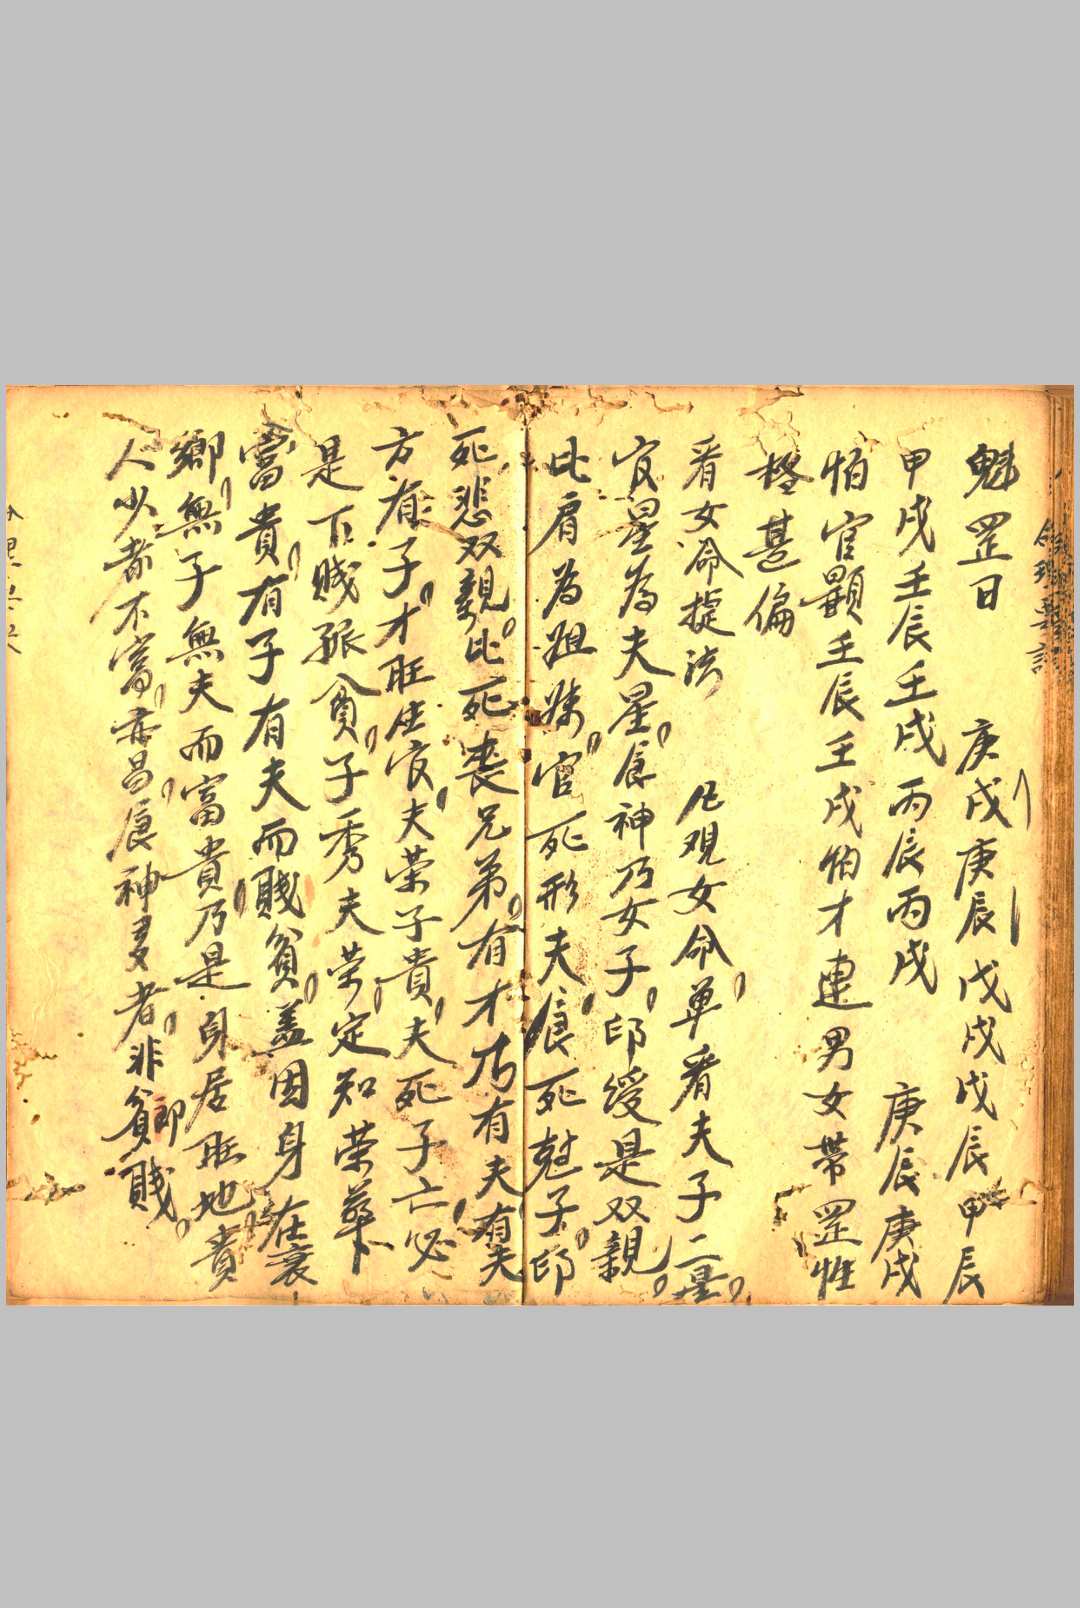 魁罡日 庚戌庚辰戊戌戊辰甲辰
甲戌壬辰壬戌丙辰丙戌 庚辰庚戌
怕官顯壬辰壬戌怕才連男女帶罡性
甚偏
看女命捷法 凡观女命单看夫子二星
官星為夫星食神乃女子印綬是双親
比肩為姐妹官死形夫食死尅子印
死悲双親比死喪兄弟有才乃有夫有夫
方有子才旺生官夫荣子貴夫死子亡必
是下賤孤貧子秀夫荣定知荣華
富貴有子有夫而賤貧盖因身在衰
鄉無子無夫而富貴乃是身居旺地貴
人少者不富亦昌食神多者非貧即賤
命理要訣